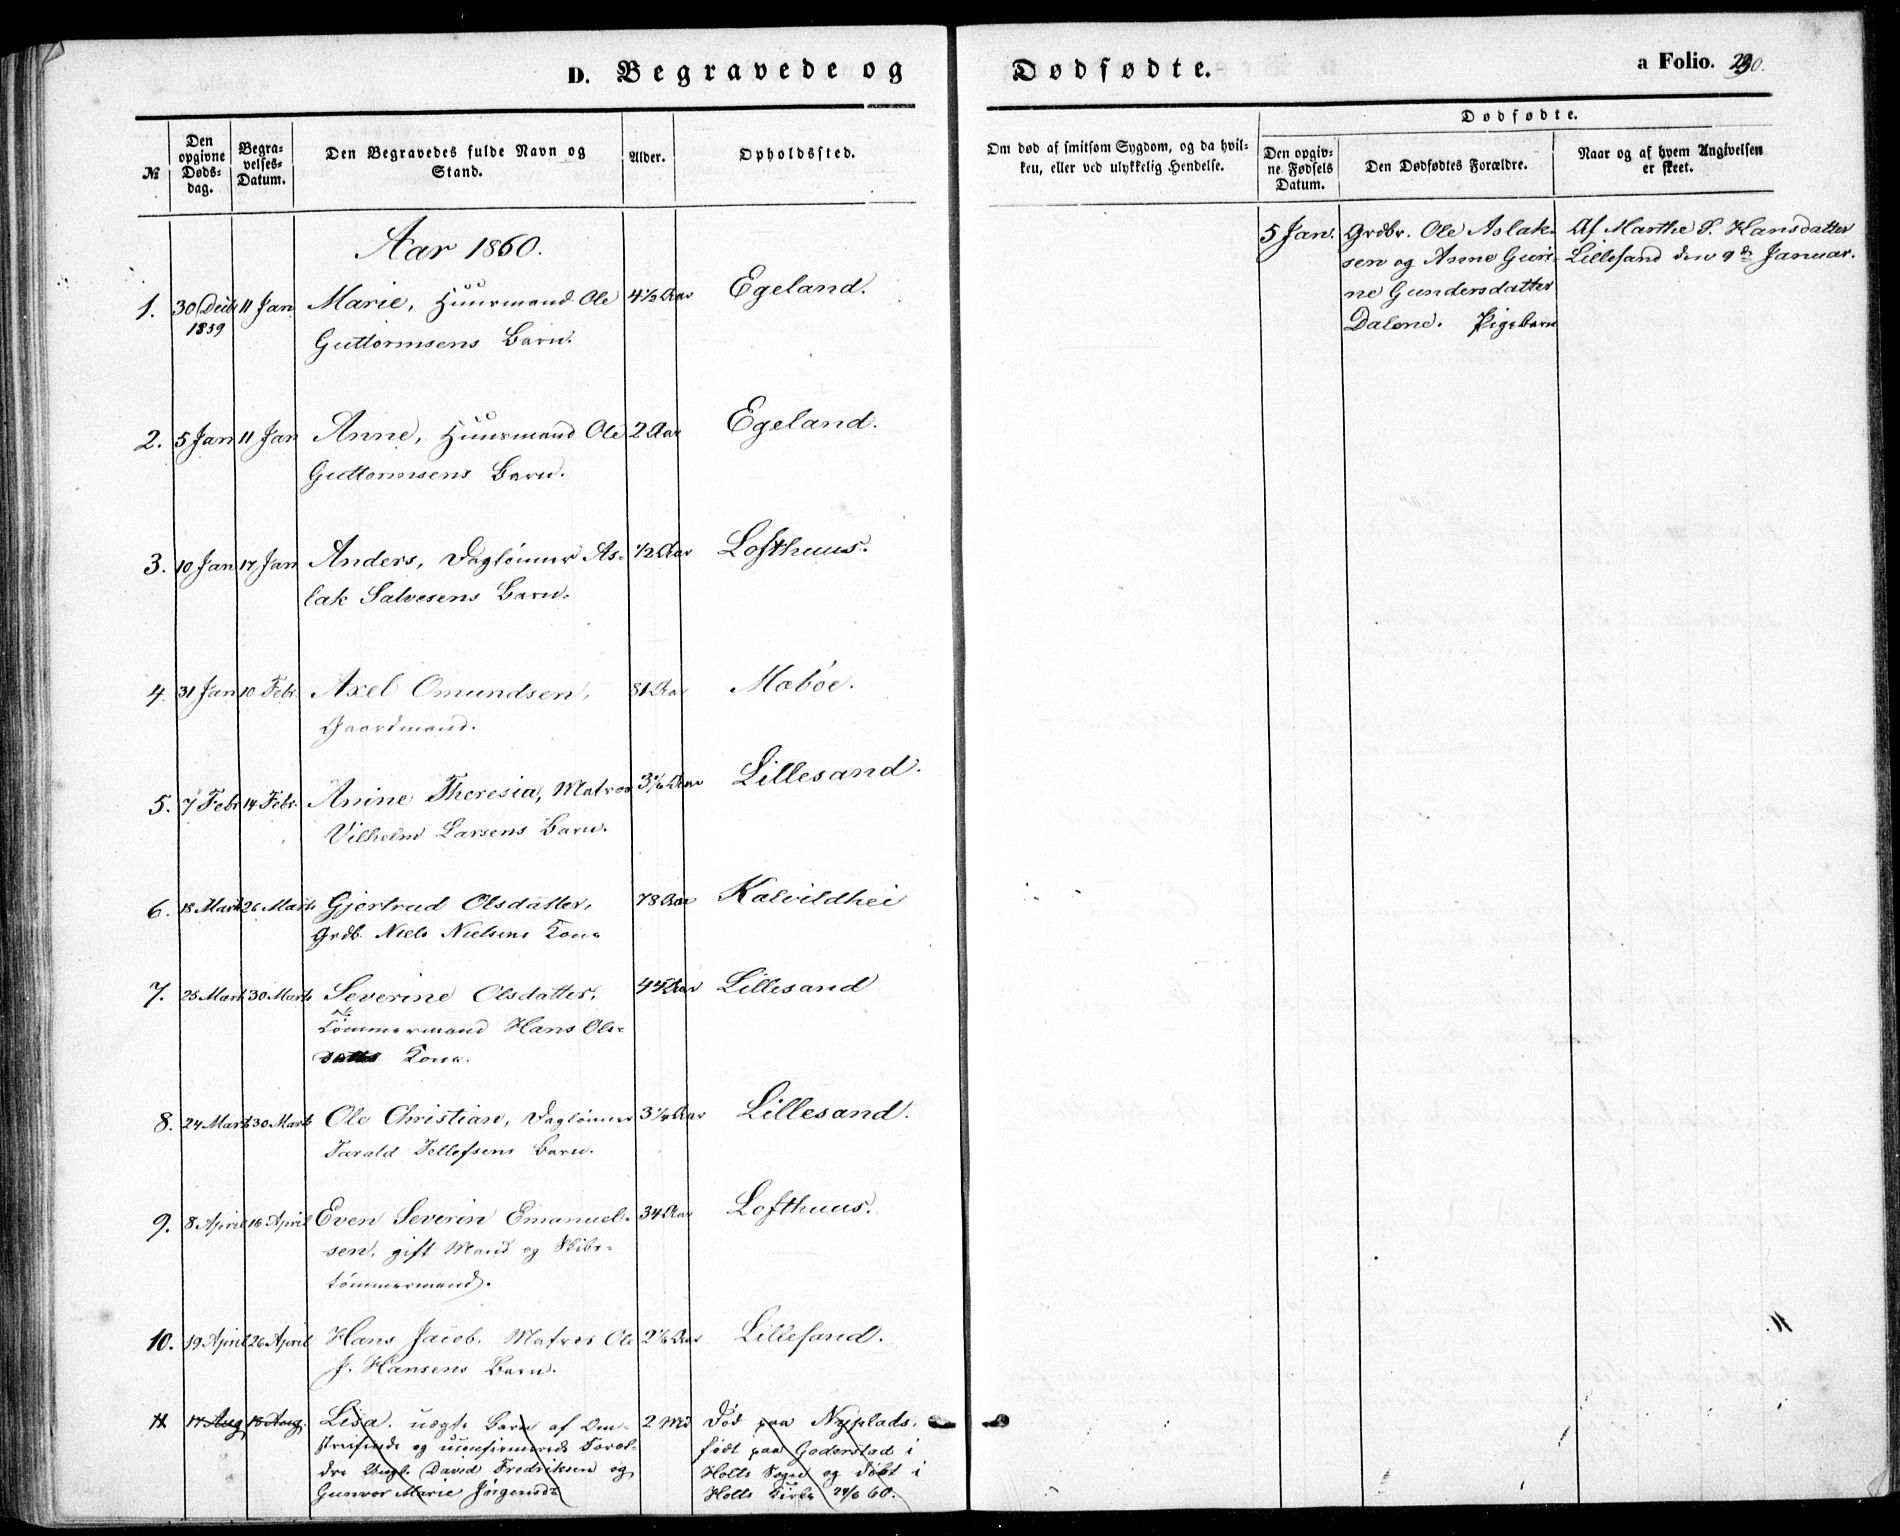 D. Begravede og
Dødfødte.
a Folio. 230.
Dødfødte.
№
Den opgivne Døds-dag.
Begra-velses-Datum.
Den Begravedes fulde Navn og Stand.
Alder.
Opholdssted.
Om død af smitsom Sygdom, og da hvil-ken, eller ved ulykkelig Hendelse.
Den opgiv-ne Fødsels Datum.
Den Dødfødtes Forældre.
Naar og af hvem Angivelsen er skeet.
Aar 1860.
1. 30 Decbr 11 Jan Marie, Huusmand Ole 4½ Aar Egeland.
1859 Guttormsens Barn.
2. 5 Jan 11 Jan Anne, Huusmand Ole 2 Aar Egeland.
Guttormsens Barn.
3. 10 Jan 17 Jan Anders, Daglønner As- ½ Aar Lofthuus.
lak Salvesens Barn.
4. 31 Jan 10 Febr. Axel Omundsen, 81 Aar Mæbøe.
Gaardmand.
5. 7 Febr 14 Febr. Anine Theresia, Matros Aar Lillesand.
Vilhelm Larsens Barn.
6. 18 Marts 26 Marts Gjertrud Olsdatter, 78 Aar Kalvildhei
Grdb. Niels Nielsens Kone
7. 25 Marts 30 Marts Severine Olsdatter, 44 Aar Lillesand
Tømmermand Hans Ols-
Kone.
8. 24 Marts 30 Marts Ole Christian, Daglønner Aar Lillesand.
Tarald Tellefsens Barn.
9. 8 April 16 April Even Severin Emanuel- 34 Aar Lofthuus.
sen, gift Mand og Skibs-
tømmermand.
10. 19 April 26 April Hans Jacob. Matros Ole 2⅙ Aar Lillesand.
J. Hansens Barn.
11 17 Aug 18 Aug. Lisa. uægte Barn af Om- 2 Md Død paa Nyplads,
streifende og uconfirmerede Foræl- født paa Goderstad i
dre Ungk. David Fredriksen og Holts Sogn og døbt i
Gunvor Marie Jørgensdr Holts Kirke 24/6 60.
5 Jan. Grdbr. Ole Aslak- Af Marthe S. Hansdatter
sen og Anne Guri- Lillesand den 9de Januar.
ne Gundersdatter
Dalene. Pigebarn
11.